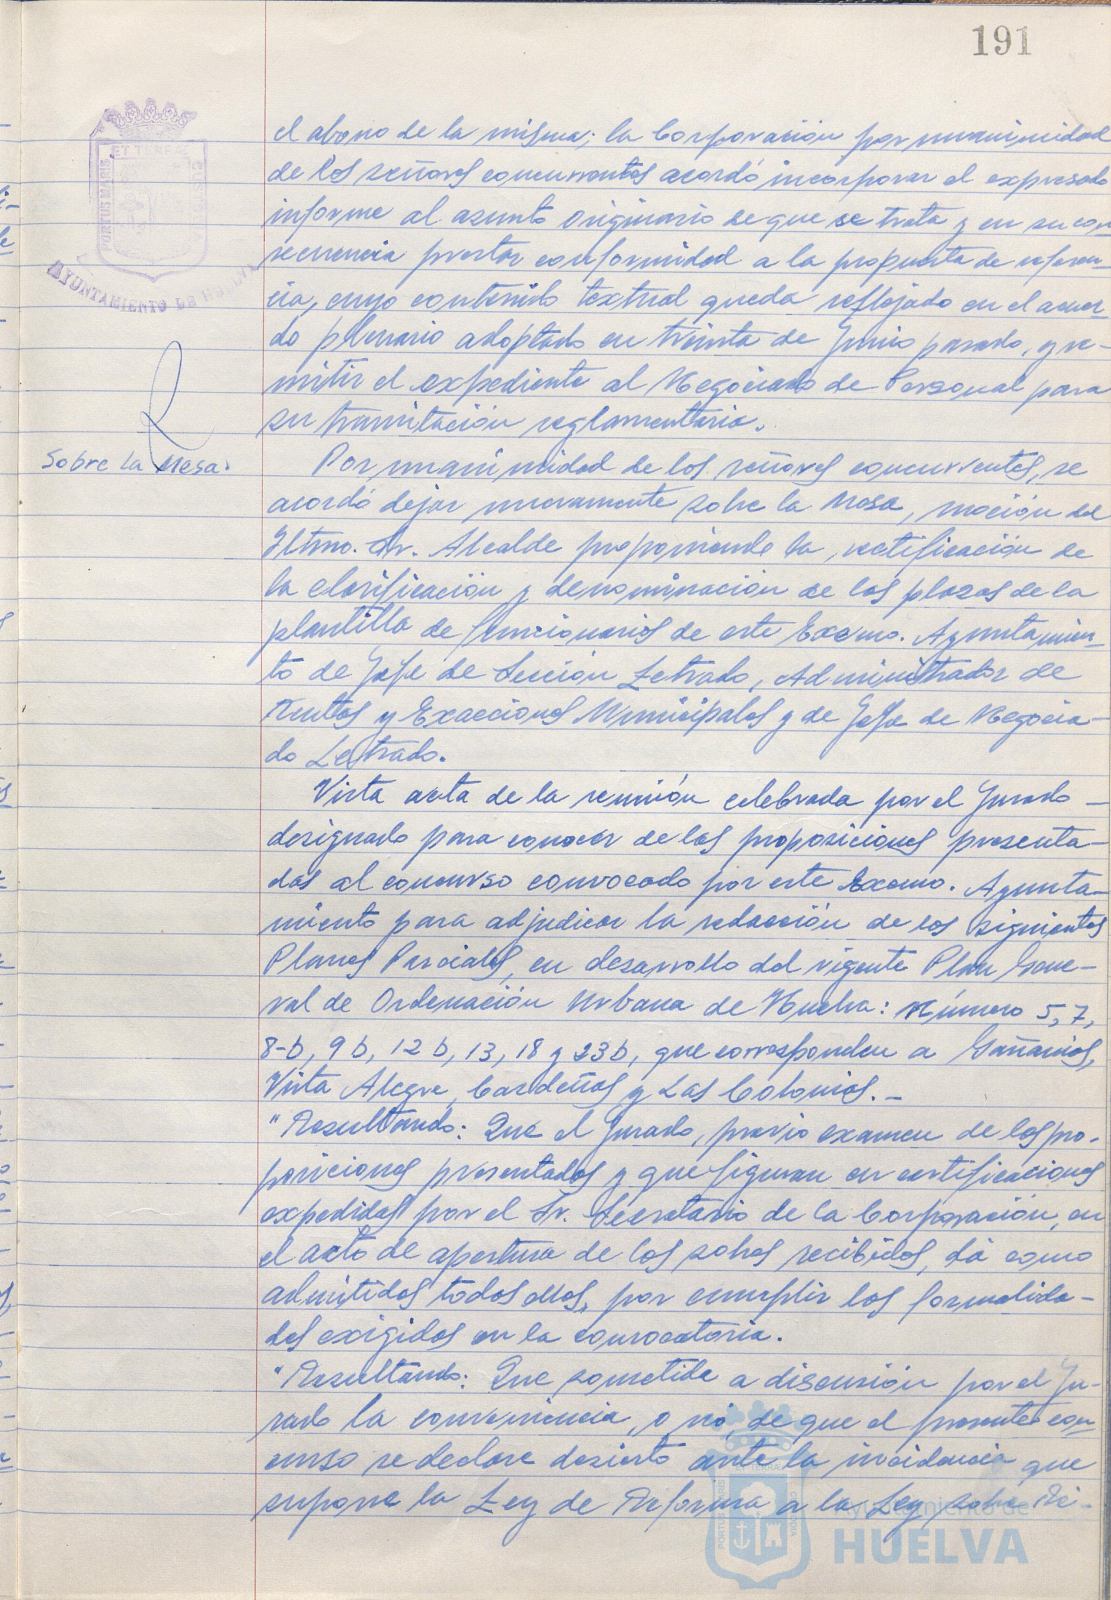 191
el abono de la misma; la Corporación por unanimidad
de los señores concurrentes acordó incorporar el expresado
informe al asunto originario de que se trata y en su con
secuencia prestar conformidad a la propuesta de referen-
cia, cuyo contenido textual queda reflejado en el acuer-
do plenario adoptado en treinta de Junio pasado, y re-
mitir el expediente al Negociado de Personal para
su tramitación reglamentaria.
Sobre la Mesa.
Por unanimidad de los señores concurrentes, se
acordó dejar nuevamente sobre la Mesa, moción del
Iltmo. Sr. Alcalde proponiendo la rectificación de
la clasificación y denominación de las plazas de la
plantilla de funcionarios de este Excmo. Ayuntamien-
to de Jefe de Sección Letrado, Administrador de
Rentas y Exacciones Municipales y de Jefe de Negocia-
do Letrado.
Vista acta de la reunión celebrada por el Jurado
designado para conocer de las proposiciones presenta-
das al concurso convocado por este Excmo. Ayunta-
miento para adjudicar la redacción de los siguientes
Planes Parciales, en desarrollo del vigente Plan Gene-
ral de Ordenación Urbana de Huelva: Número 5, 7,
8-b, 9 b, 12 b, 13, 18 y 23 b, que corresponden a
Vista Alegre, Cardeñas y Las Colonias.-
"Resultando: Que el Jurado, previo examen de las pro-
posiciones presentadas y que figuran en certificaciones
expedidas por el Sr. Secretario de la Corporación, en
el acto de apertura de los sobres recibidos, dá como
admitidos todos ellos, por cumplir las formalida-
des exigidas en la convocatoria.
"Resultando: Que sometida a discusión por el Ju-
rado la conveniencia, o nó, de que el presente con
curso se declare desierto ante la incidencia que
supone la Ley de Reforma a la Ley sobre Ré-
ET TERRAE
PORTUS MARIS
CUSTODIA
AYUNTAMIENTO DE HUELVA
Ayuntamiento de
HUELVA